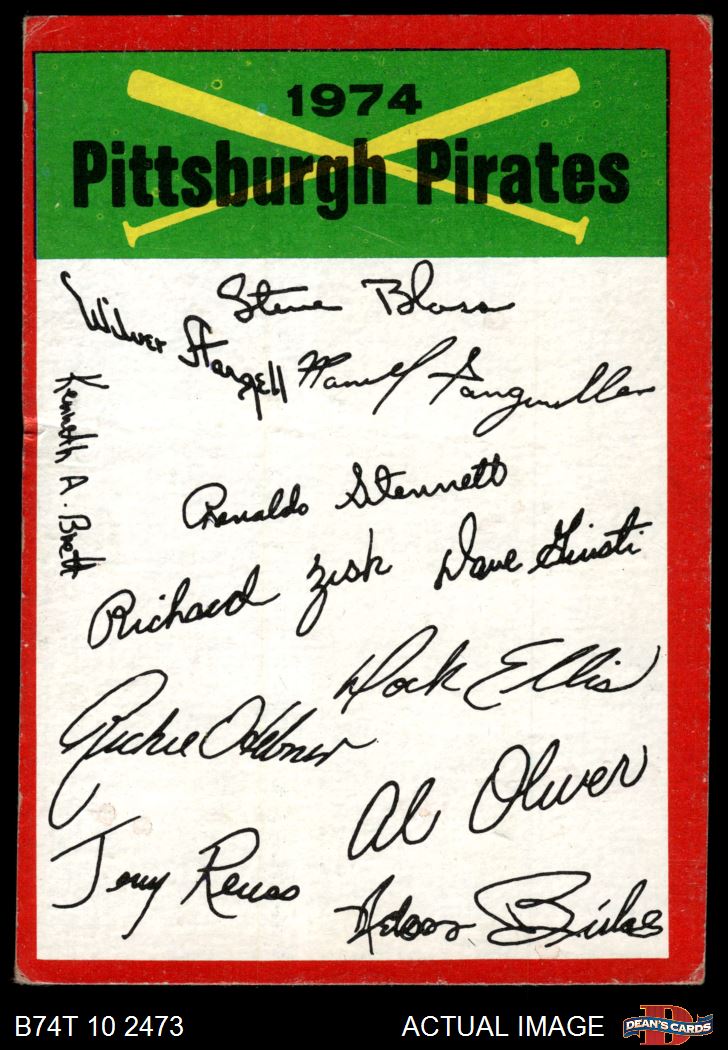 1974
Pittsburgh Pirates
Steve Blass
Wilver Stargell
Manuel Sanguillen
Kenneth A. Brett
Renaldo Stennett
Richard Zisk
Dave Giusti
Dock Ellis
Richie Hebner
Al Oliver
Jerry Reuss
Nelson Briles
B74T 10 2473
ACTUAL IMAGE
D
DEAN'S CARDS